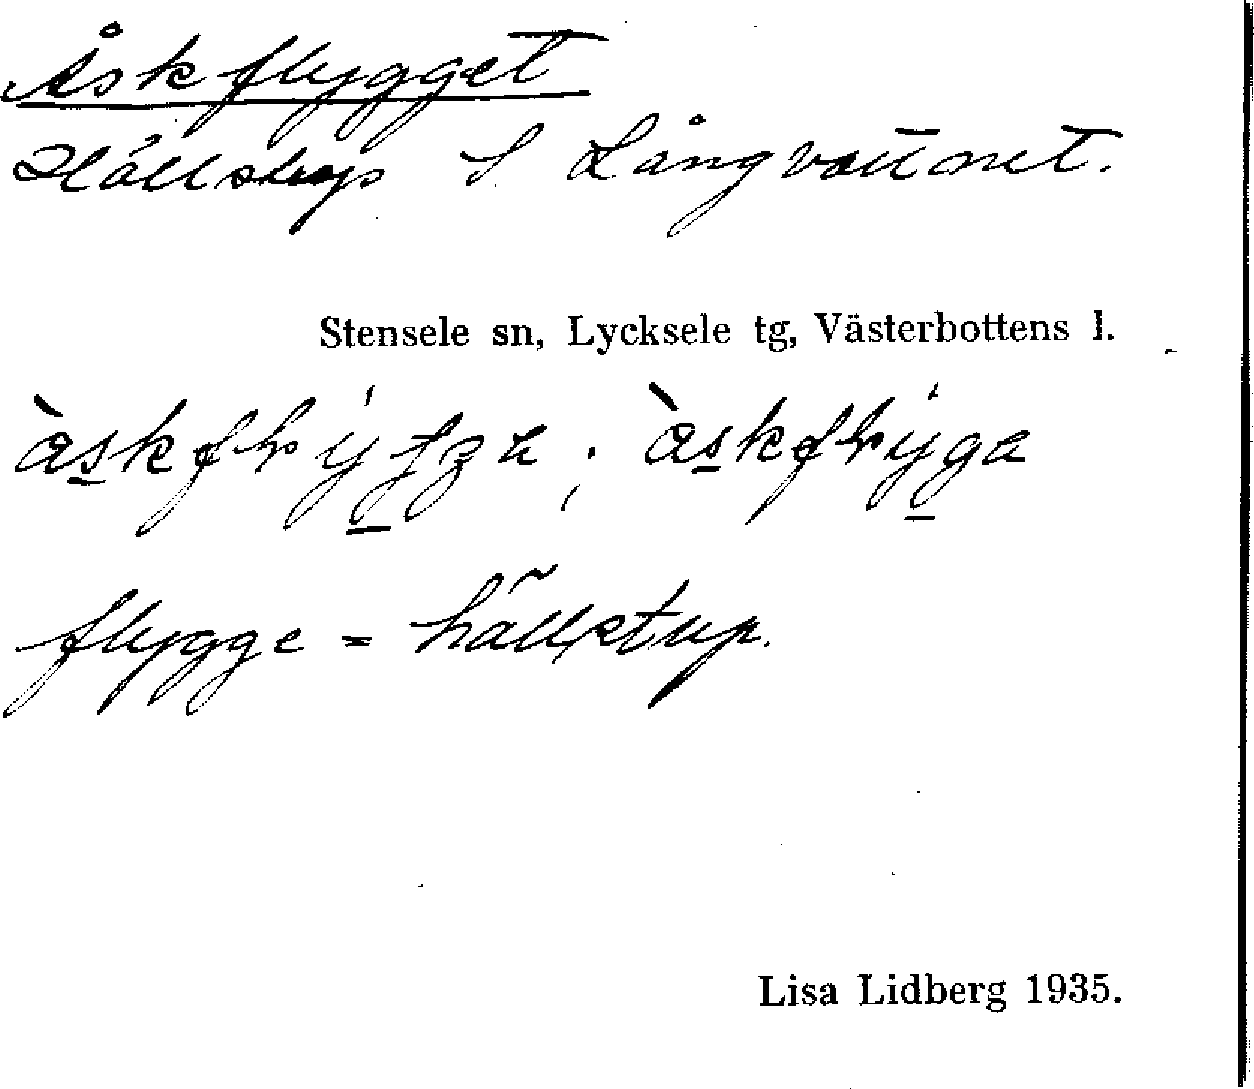 Åskflygget
Hällstup S Långvattnet.
Stensele sn, Lycksele tg, Västerbottens l.
flygge = hällstup.
Lisa Lidberg 1935.